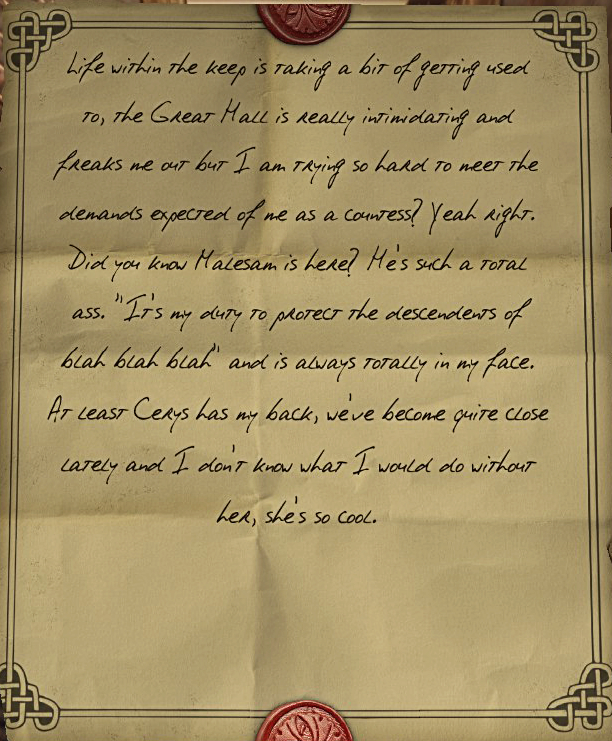 Life within the keep is taking a bit of getting used
to, the Great Hall is really intimidating and
freaks me out but I am trying so hard to meet the
demands expected of me as a countess? Yeah right.
Did you know Malesam is here? He's such a total
ass. "It's my duty to protect the descendents of
blah blah blah" and is always totally in my face.
At least Cerys has my back, we've become quite close
lately and I don't know what I would do without
her, she's so cool.